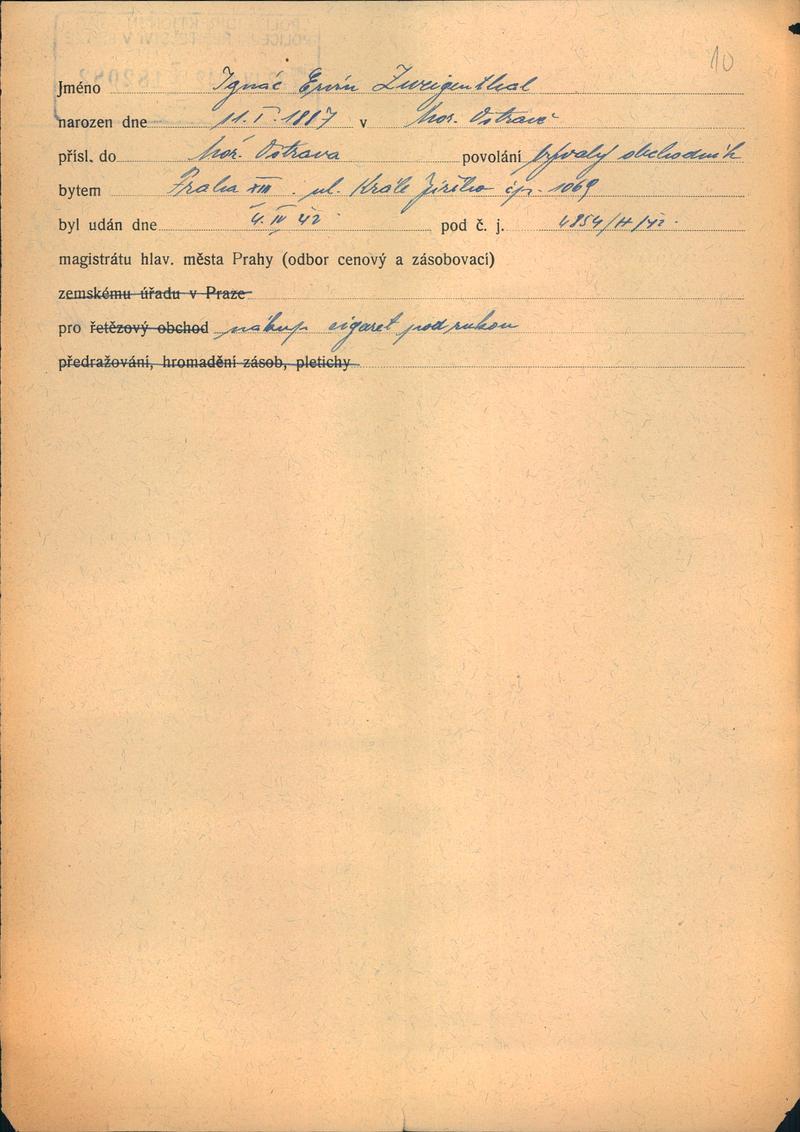 10
Jméno Ignác Ervín Zweigenthal
narozen dne 11. I. 1887 v Mor. Ostravě
přísl. do Mor. Ostrava povolání bývalý obchodník
bytem Praha XIII. ul. Krále Jiřího čp. 1069
byl udán dne 4. IV 42 pod č. j. 4854/H/42.
magistrátu hlav. města Prahy (odbor cenový a zásobovací)
zemskému úřadu v Praze
pro řetězový obchod nákup cigaret pod rukou
předražování, hromadění zásob, pletichy